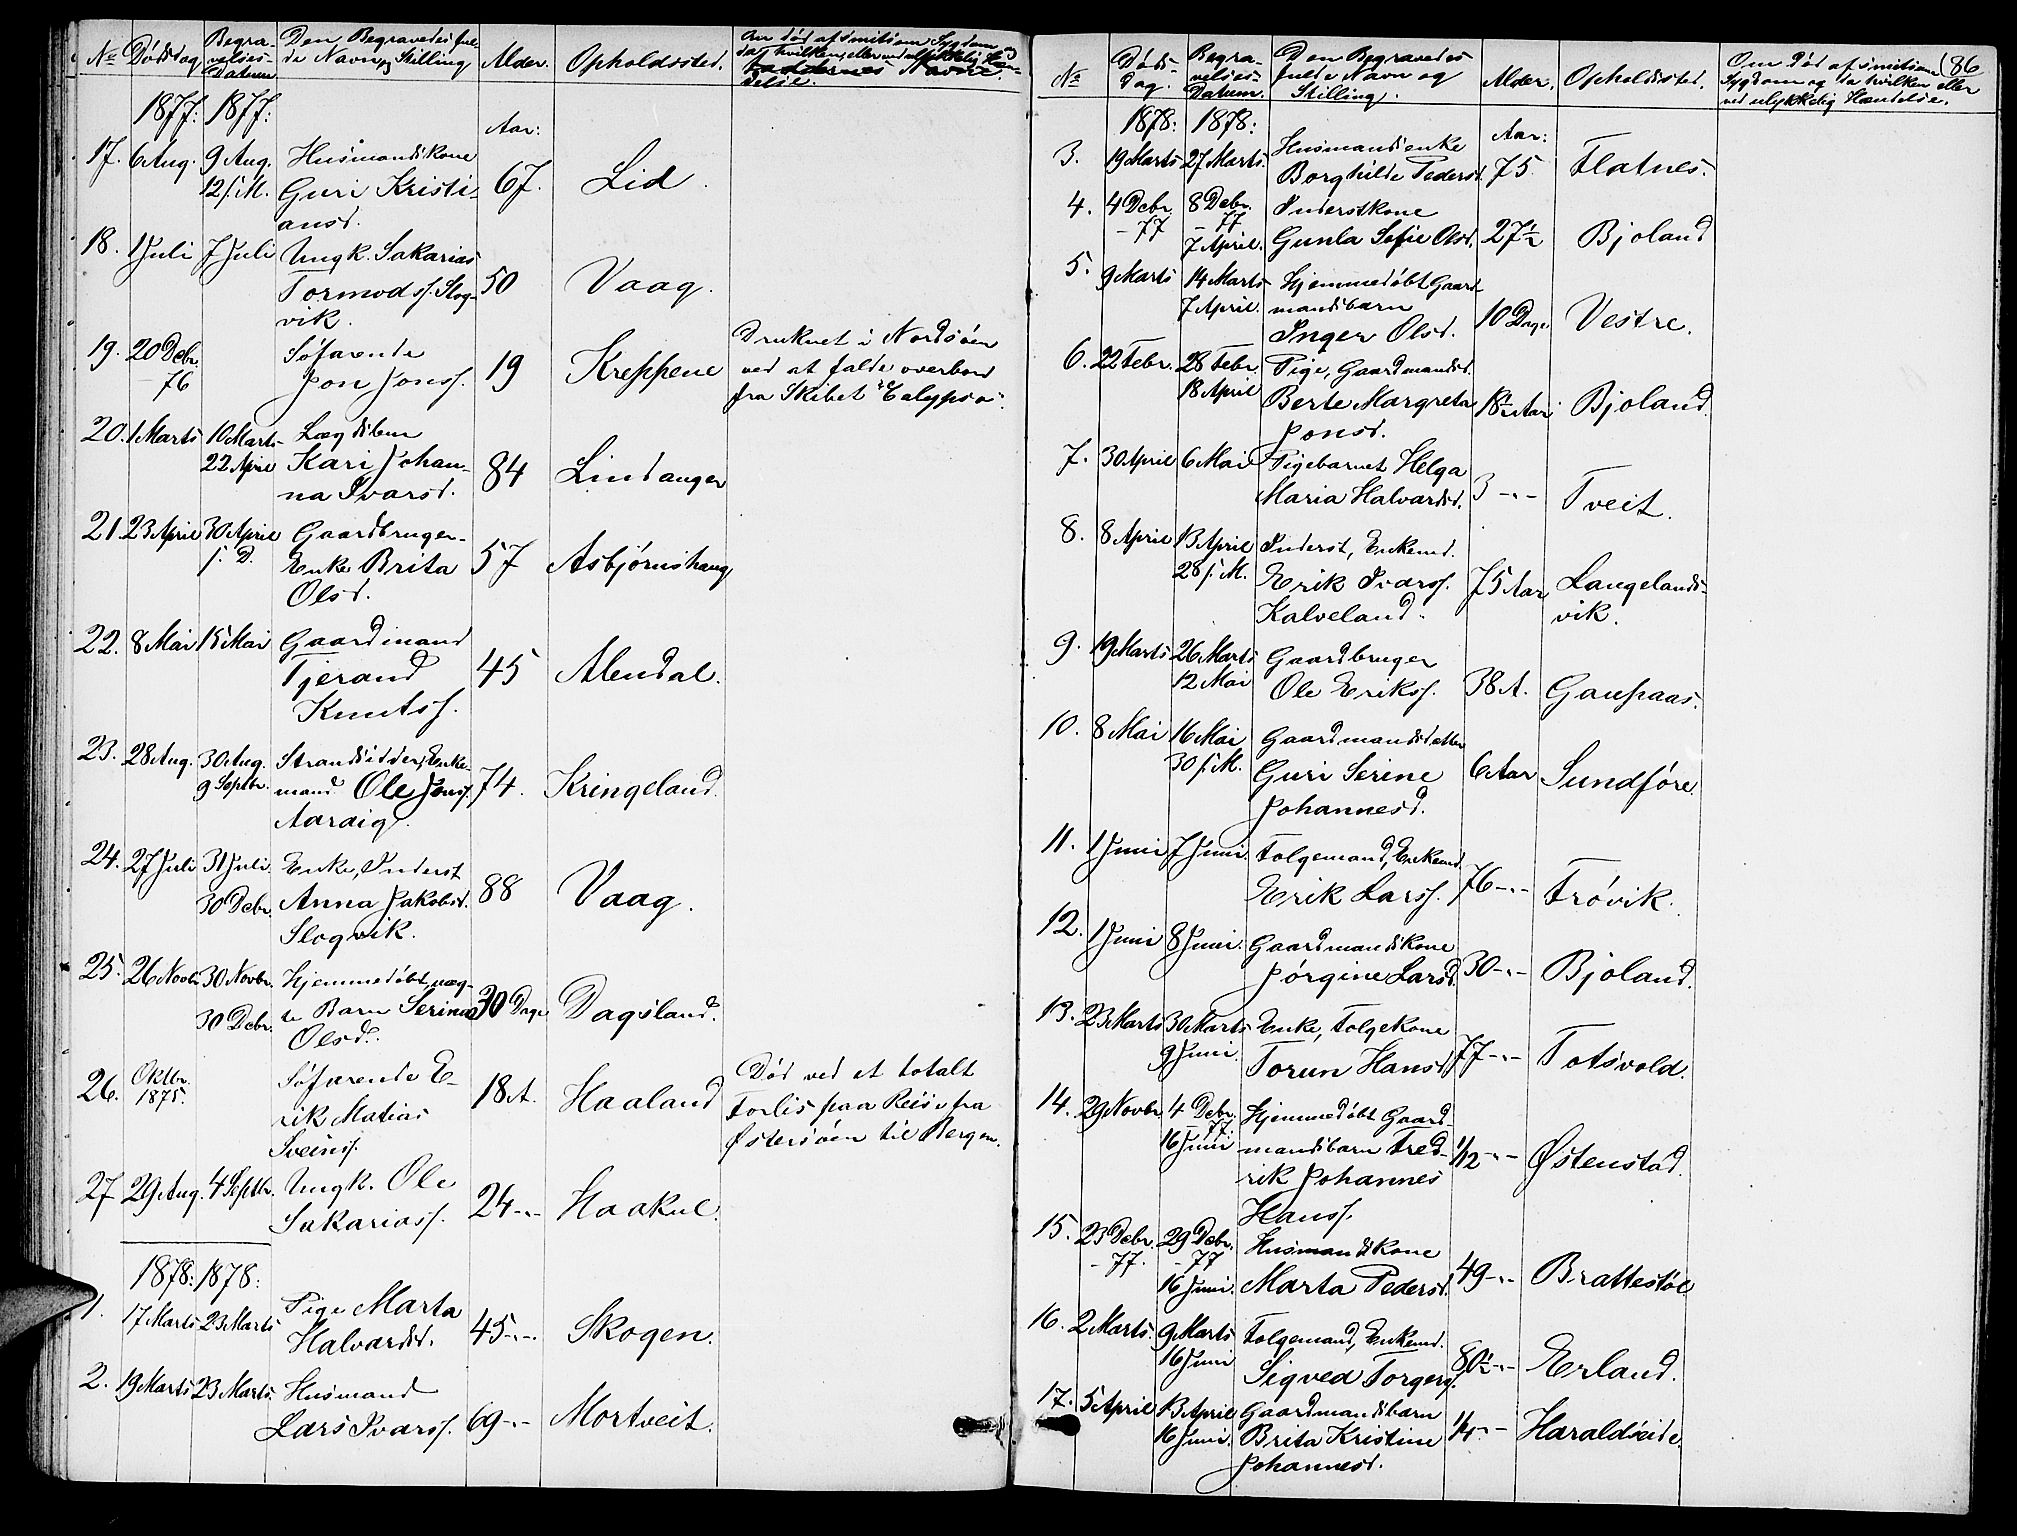 No Dødsdag Begravelses-Datum Den Begravedes fulde Navn og Stilling Alder. Opholdssted. Om død af smitsom Sygdom og da hvilken, eller ved ulykkelig Hændelse.
1877: 1877: Aar:
17. 6 Aug. 9 Aug. Husmandskone
12 s. M. Guri Kristi- 67. Lid.
ansd.
18. 1 Juli 7 Juli Ungk. Sakarias
Tormodss. Slog- 50 Vaag.
vik.
19. 20 Debr. Søfarende Druknet i Nordsøen
-76 Jon Jonss. 19 Kreppene ved at falde overbord
fra Skibet "Calypso".
20. 1 Marts 10 Marts Lægdslem
22 April Kari Johan- 84 Lindanger
na Ivarsd.
21. 23 April 30 April Gaardbruger-
s. D. Enke Brita 57 Asbjørnshaug
Olsd.
22. 8 Mai 15 Mai Gaardmand
Tjerand 45 Alendal.
Knutss.
23. 28 Aug. 30 Aug. Strandsidder, Enke-
9 Septbr. mand Ole Jonss. 74. Kringeland.
Aaraig.
24. 27 Juli 31 Juli. Enke, Inderst
30 Debr. Anna Jakobsd. 88 Vaag.
Slogvik.
25. 26 Novbr. 30 Novbr. Hjemmedøbt, uæg-
30 Debr. te Barn Serine 30 Dage Dagsland.
Olsd.
26. Oktbr. Søfarende E- Død ved et totalt
1875. rik Matias 18 A. Haaland Forlis paa Reise fra
Sveinss. Østersøen til Bergen.
27 29 Aug. 4 Septbr. Ungk. Ole
Sakariass. 24-"- Haakul.
1878: 1878:
1. 17 Marts 23 Marts Pige Marta
Halvardsd. 45-"- Skogen.
2. 19 Marts 23 Marts. Husmand
Lars Ivarss. 69-"- Mortveit.
86
No Døds-dag. Begravelses-Datum. Den Begravedes fulde Navn og Stilling. Alder. Opholdssted. Om Død af smitsom Sygdom og da hvilken eller ved ulykkelig Hændelse.
1878: 1878: Aar:
3. 19 Marts 27 Marts. Husmandsenke
Borghilde Pedersd. 75. Flatnes.
4. 4 Debr. 8 Debr. Inderstkone
-77 -77
7 April. Gunla Sofie Olsd. 27½ Bjoland
5. 9 Marts 14 Marts Hjemmedøbt Gaard-
7 April. mandsbarn
Inger Olsd. 10 Dage Vestre.
6. 22 Febr. 28 Febr. Pige, Gaardmandsd.
18 April Berte Margreta 18½ Aar Bjoland.
Jonsd.
7. 30 April 6 Mai Pigebarnet Helga
Maria Halvardsd. 3-"- Tveit.
8. 8 April 13 April Inderst, Enkemd.
28 s. M. Erik Ivarss. 75 Aar Langelands-
Kalveland. vik.
9. 19 Marts 26 Marts Gaardbruger
12 Mai Ole Erikss. 38 A. Gaupaas.
10. 8 Mai 16 Mai Gaardmandsdatter
30 s. M. Guri Serine 6 Aar Sundføre.
Johannesd.
11. 1 Juni 7 Juni. Folgemand, Enkemd.
Erik Larss. 76-"- Frøvik.
12. 1 Juni 8 Juni. Gaardmandskone
Jørgine Larsd. 30-"- Bjoland.
13. 23 Marts 30 Marts Enke, Folgekone
9 Juni. Torun Hansd. 77-"- Totsvold.
14. 29 Novbr. 4 Debr. Hjemmedøbt Gaard-
-77.
16 Juni mandsbarn Fred- 1/12-"- Østenstad.
rik Johannes
Hanss.
15. 23 Debr. 29 Debr. Husmandskone
-77. -77
16 Juni. Marta Pedersd. 49-"- Brattestøl
16. 2 Marts. 9 Marts Folgemand, Enkemd.
16 Juni Sigved Torgerss. 80½-"- Erland.
17. 5 April 13 April Gaardmandsbarn
16 Juni. Brita Kristine 1/4-"- Haraldseide.
Johannesd.